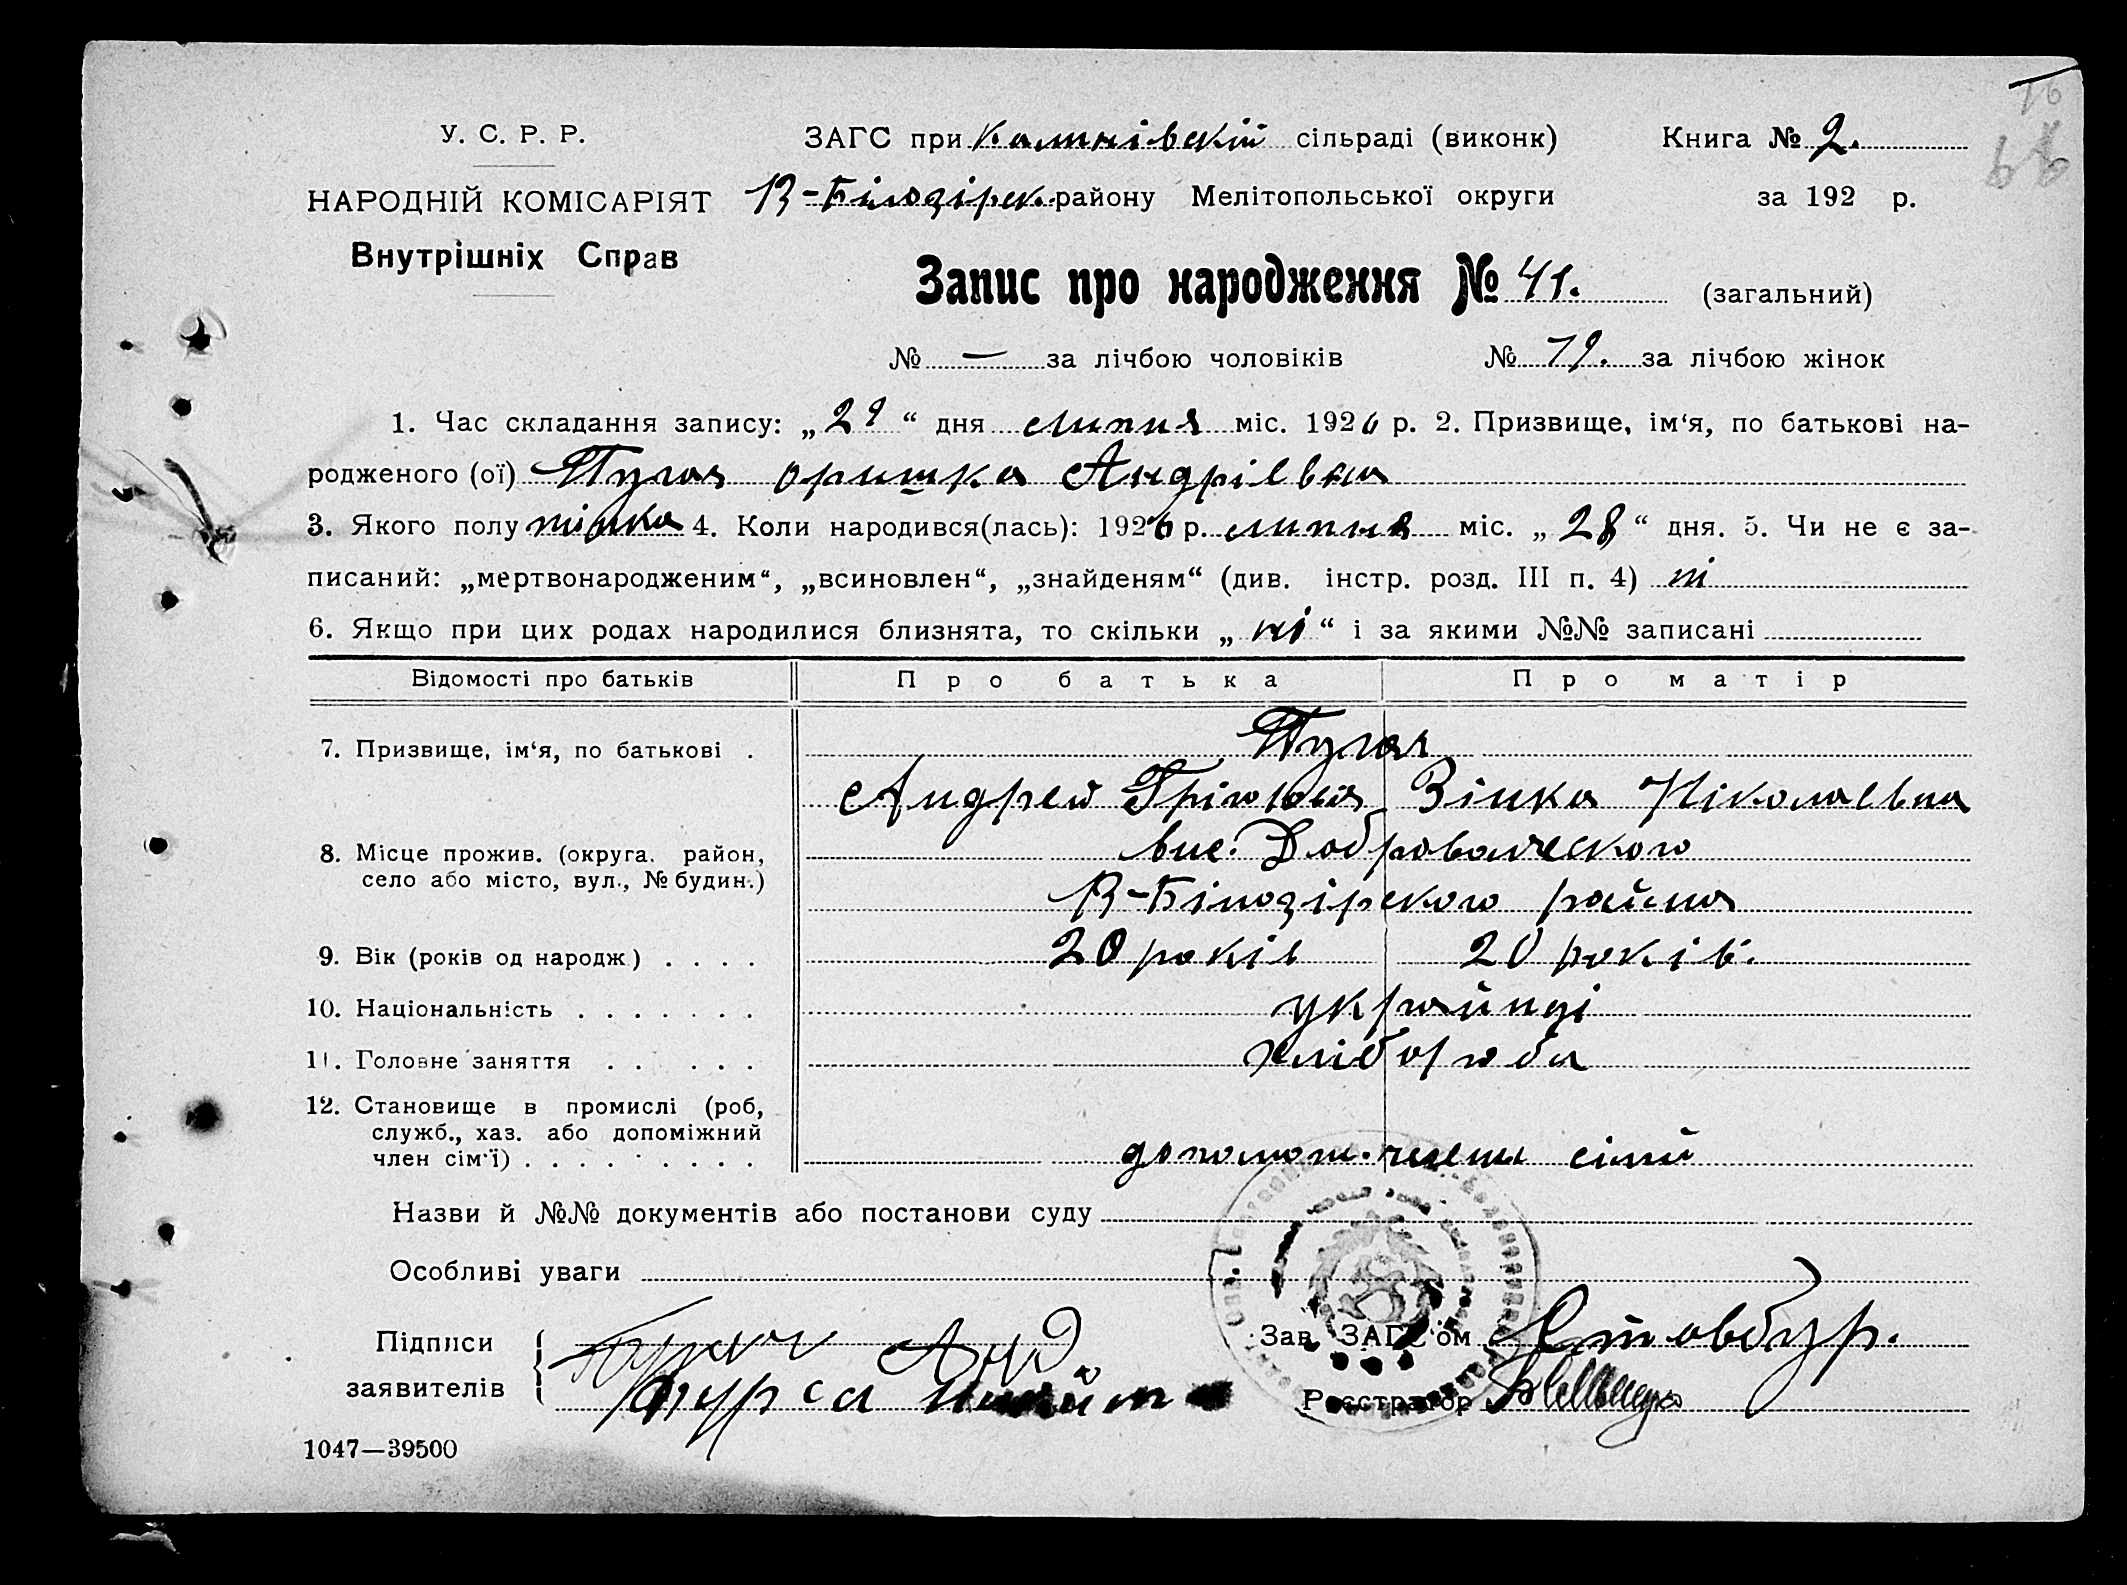 У. С. Р. Р.
НАРОДНІЙ КОМІСАРІЯТ
Внутрішніх Справ
ЗАГС при сільраді (виконк)
В-Білозірск. району Мелітопольської округи
Книга № 2.
за 192 р.
Запис про народження № 41. (загальний)
№ — за лічбою чоловіків № 19. за лічбою жінок
1. Час складання запису: „29“ дня липня міс. 1926 р. 2. Призвище, ім‘я, по батькові на-
родженого (ої) Пугач Оришка Андріевна
3. Якого полу жінка 4. Коли народився(лась): 1926 р. липня міс. „28“ дня. 5. Чи не є за-
писаний: „мертвонародженим“, „всиновлен“, „знайденям“ (див. інстр. розд. III п. 4) ні
6. Якщо при цих родах народилися близнята, то скільки „ні“ і за якими №№ записані
Відомості про батьків Про батька Про матір
7. Призвище, ім‘я, по батькові . Пугач
Андрей Зінка Ніколаевна
8. Місце прожив. (округа, район,
село або місто, вул., № будин.)
вис.
В-Білозірского района
9. Вік (років од народж) . . . . 20 років 20 років.
10. Національність . . . . . . . украйнці
11. Головне заняття . . . . . хлібороби
12. Становище в промислі (роб,
служб., хаз. або допоміжний
член сім‘ї) . . . . . . . . . члены сімй
Назви й №№ документів або постанови суду
Особливі уваги
Підписи
заявителів
Зав. ЗАГС‘ом
Реєстратор
1047—39500